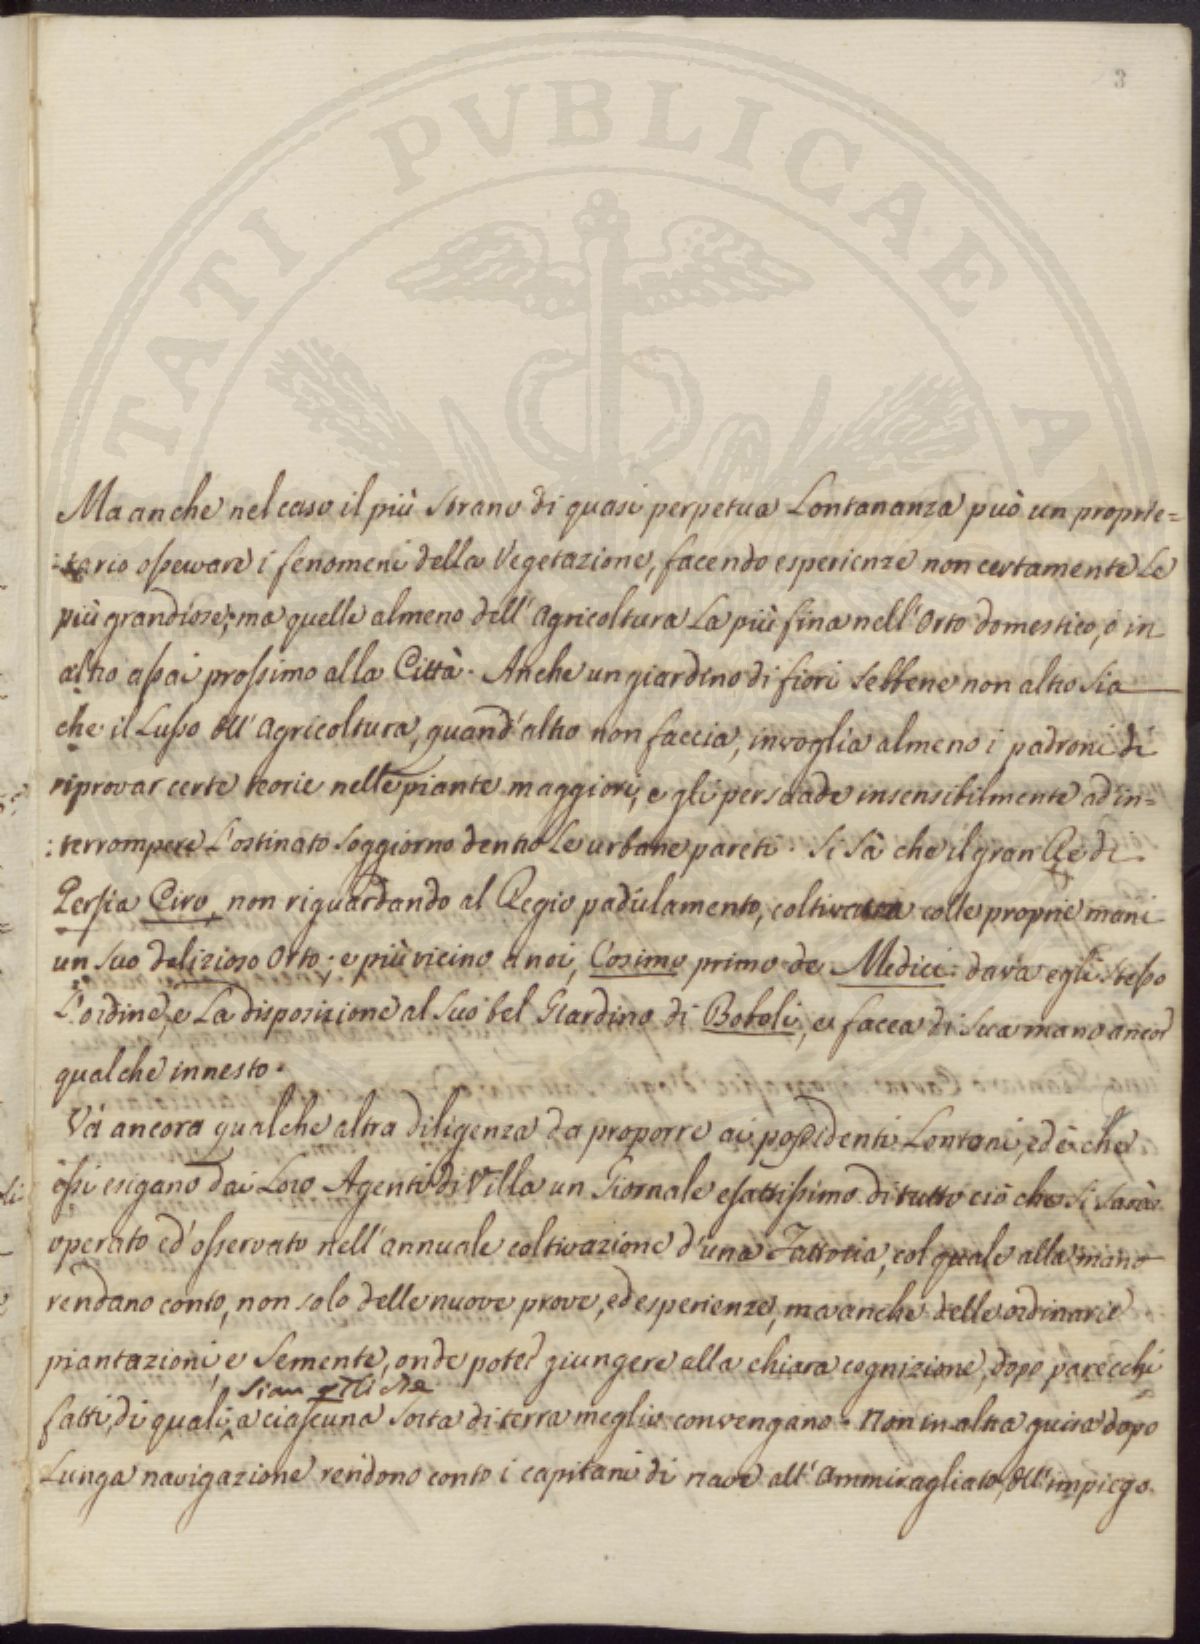 3
Ma anche nel caso il più strano di quasi perpetua Lontananza può un proprie=
:tario osservare i fenomeni della Vegetazione, facendo esperienze non certamente Le
più grandiose, ma quelle almeno dell' Agricoltura La più fina nell' Orto domestico, ò in
altro assai prossimo alla Città. Anche un giardino di fiori sebbene non altro sia
che il Lusso dell' Agricoltura, quand' altro non faccia, invoglia almeno i padroni di
riprovar certe teorie nelle piante maggiori, e gli persuade insensibilmente ad in=
:terrompere L'ostinato soggiorno dentro Le urbane pareti. Si sà che il gran Re di
Persia Ciro, non riguardando al Regio padulamento, coltivava colle proprie mani
un suo delizioso Orto; e più vicino a noi, Cosimo primo de Medici dava egli stesso
L'ordine, e La disposizione al suo bel Giardino di Boboli, e facea di sua mano ancor
qualche innesto.
Và ancora qualche altra diligenza da proporre ai possidenti Lontani, ed è che
essi esigano dai Loro Agenti di Villa un Giornale esattissimo di tutto ciò che si sarà
operato ed' osservato nell' annuale coltivazione d'una Fattoria, col quale alla mano
rendano conto, non solo delle nuove prove, ed esperienze, ma anche delle ordinarie
piantazioni, e Semente, onde poter giungere alla chiara cognizione, dopo parecchi
sian qlli che
fatti, di quali a ciascuna sorta di terra meglio convengano. Non in altra guisa dopo
Lunga navigazione rendono conto i capitani di nave all' Ammiragliato, dell' impiego
PUBLICAE